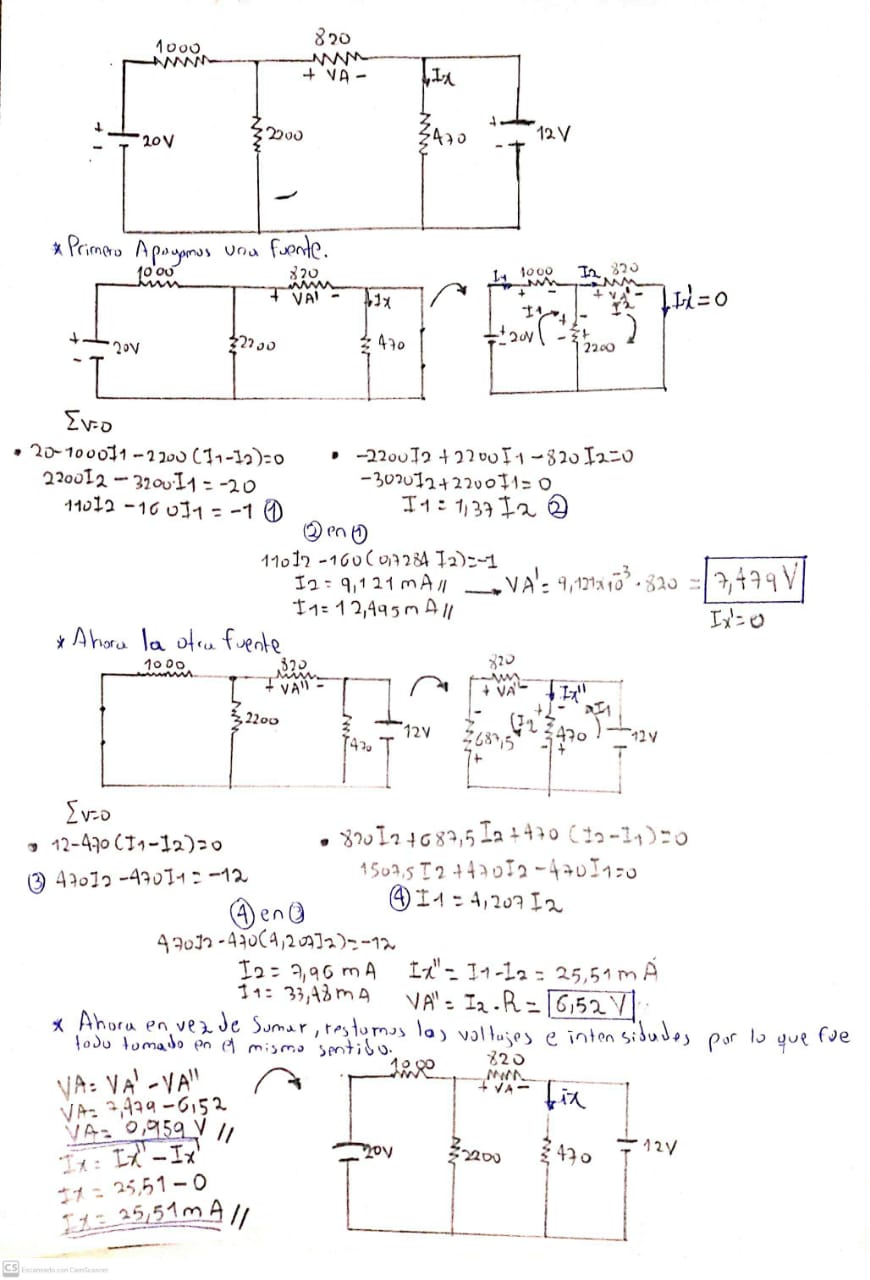 1000
820
+ VA -
Ix
+
-
20V
2200
470
+
-
12V
* Primero Apagamos una fuente.
1000
820
+ VA' -
Ix
+
-
20V
2200
470
I1 1000 I2 820
+ - + VA' -
Ix'=0
I1
I2
20V
2200
Σv=0
• 20-1000I1-2200(I1-I2)=0
2200I2-3200I1=-20
110I2-160I1=-1 ①
• -2200I2+2200I1-820I2=0
-3020I2+2200I1=0
I1=1,37I2 ②
② en ①
110I2-160(0,7284I2)=-1
I2=9,121mA//
I1=12,495mA//
VA'=9,121x10⁻³·820=7,479V
Ix'=0
* Ahora la otra fuente
1000
820
+ VA'' -
2200
470
12V
820
+ VA'' -
Ix''
I1
I2
687,5
470
12V
Σv=0
• 12-470(I1-I2)=0
③ 470I2-470I1=-12
• 820I2+687,5I2+470(I2-I1)=0
1507,5I2+470I2-470I1=0
④ I1=4,207I2
④ en ③
470I2-470(4,207I2)=-12
I2=7,96mA
I1=33,48mA
Ix''=I1-I2=25,51mA
VA''=I2.R=6,52V
* Ahora en vez de sumar, restamos los voltajes e intensidades por lo que fue
todo tomado en el mismo sentido.
VA=VA'-VA''
VA=7,479-6,52
VA=0,959V//
Ix=Ix''-Ix'
Ix=25,51-0
Ix=25,51mA//
1000
820
+ VA -
ix
20V
2200
470
12V
CS Escaneado con CamScanner